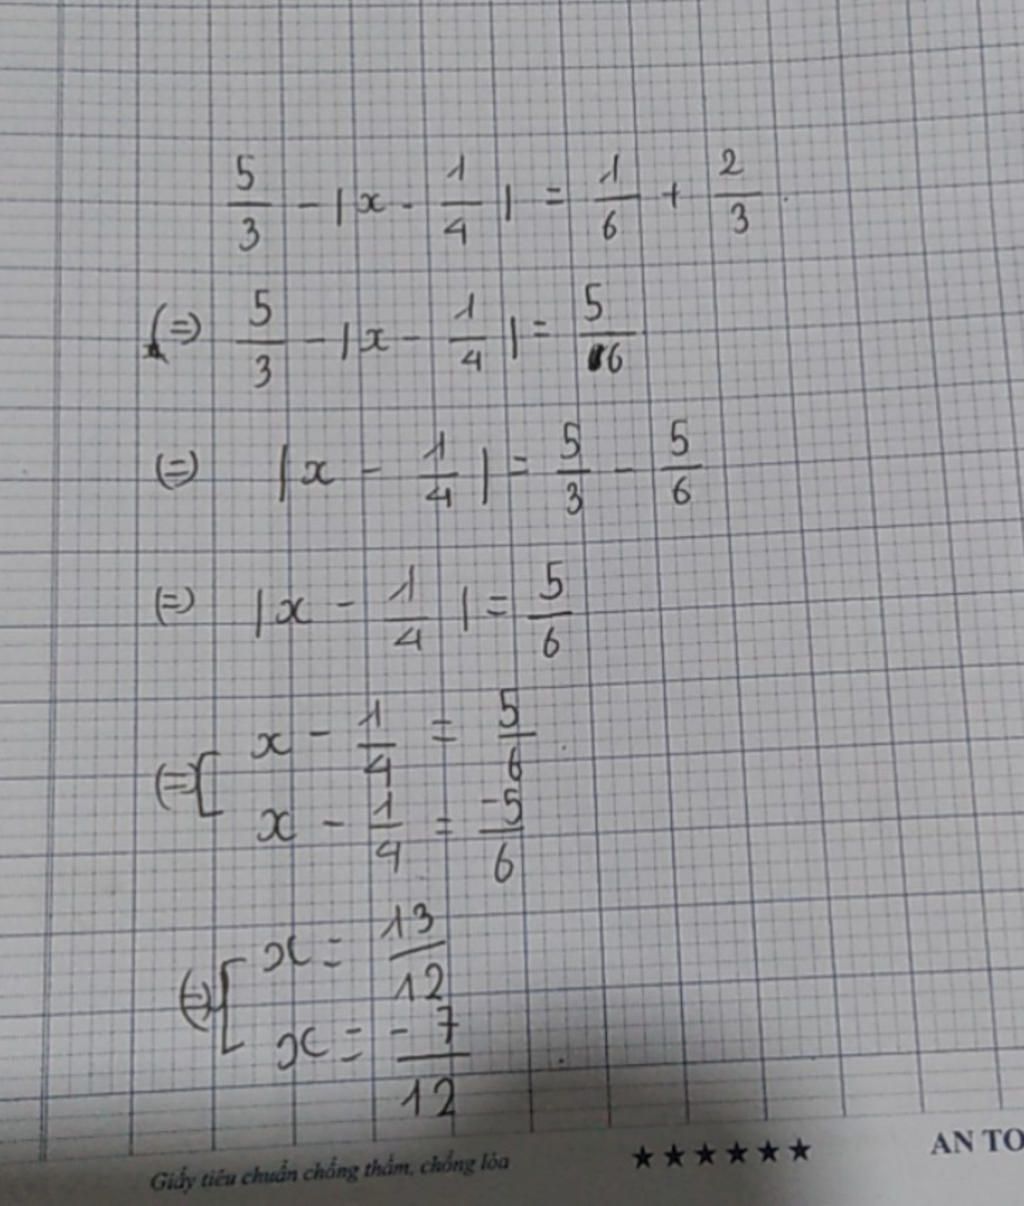 5/3 - |x - 1/4| = 1/6 + 2/3
(=) 5/3 - |x - 1/4| = 5/6
(=) |x - 1/4| = 5/3 - 5/6
(=) |x - 1/4| = 5/6
(=) [ x - 1/4 = 5/6
x - 1/4 = -5/6
(=) [ x = 13/12
x = -7/12
Giấy tiêu chuẩn chống thấm, chống lóa ★★★★★★ AN TO